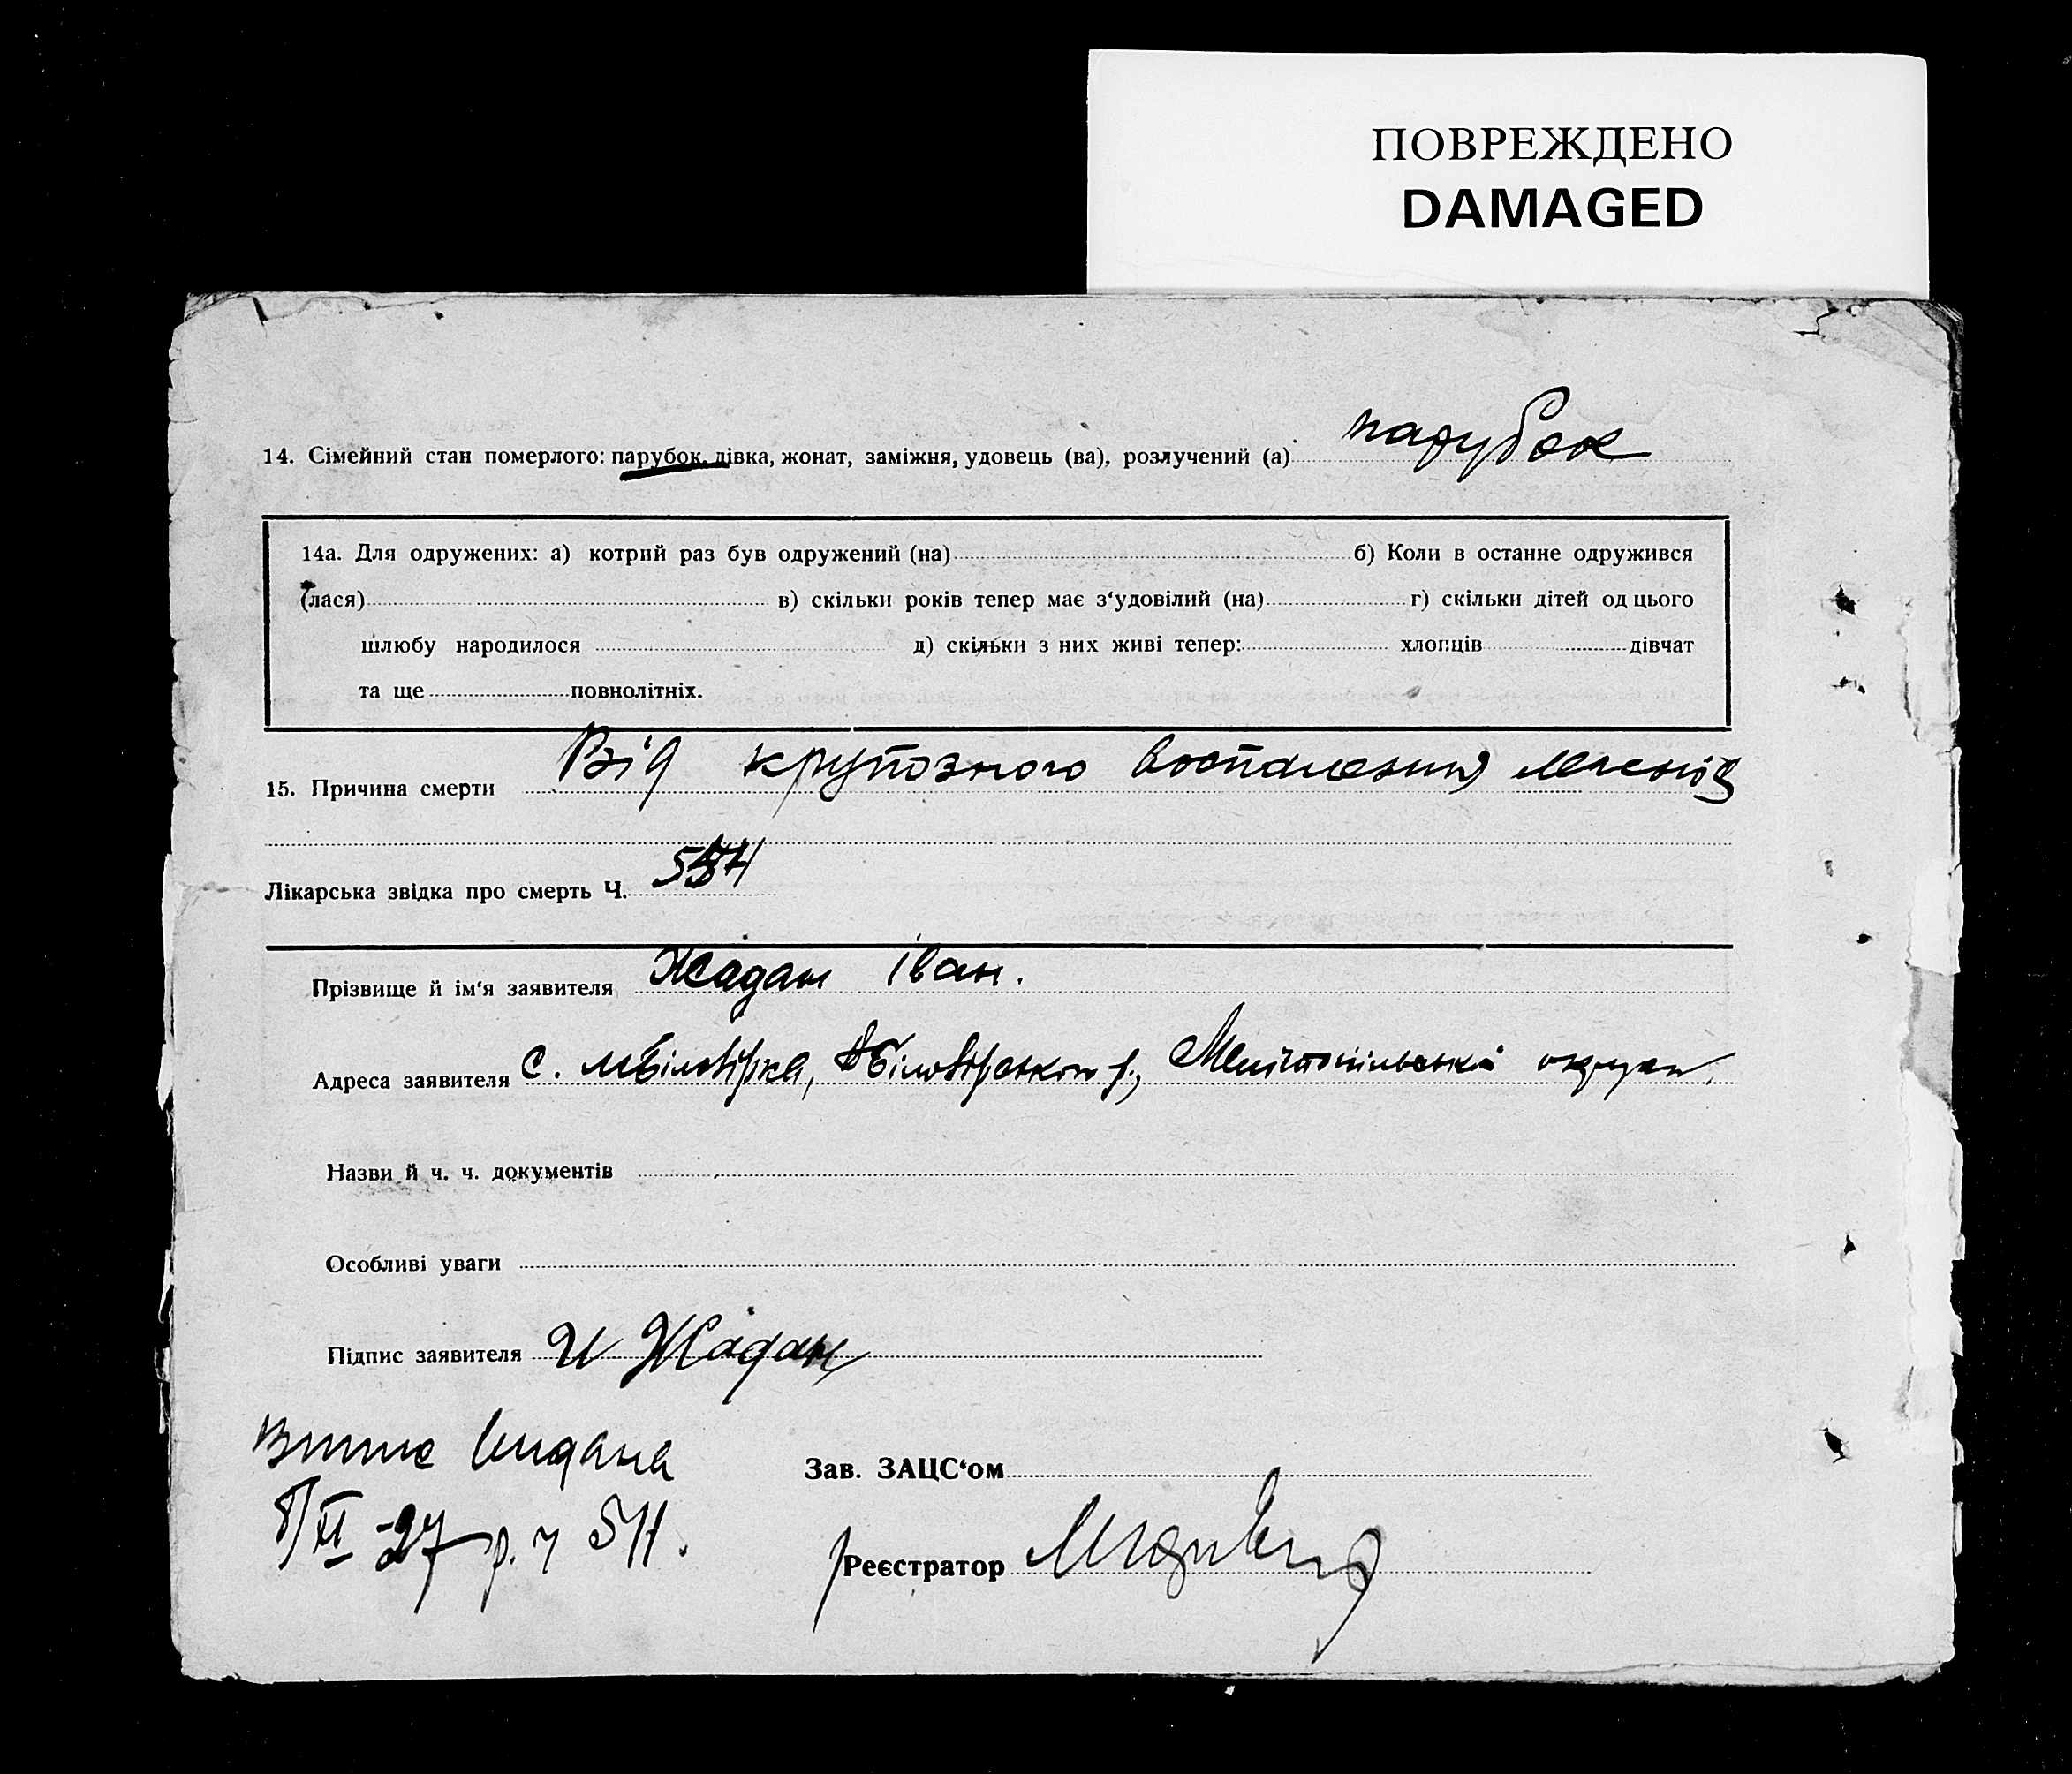 ПОВРЕЖДЕНО
DAMAGED
14. Сімейний стан померлого: парубок, дівка, жонат, заміжня, удовець (ва), розлучений (а) парубок
14а. Для одружених: а) котрий раз був одружений (на) б) Коли в останне одружився
(лася) в) скільки років тепер має з‘удовілий (на) г) скільки дітей од цього
шлюбу народилося д) скільки з них живі тепер: хлопців дівчат
та ще повнолітніх.
15. Причина смерти Від крупозного воспаления легенів
Лікарська звідка про смерть Ч.
Прізвище й ім‘я заявителя Жадан Іван.
Адреса заявителя С. Мелітопільської округи
Назви й ч. ч. документів
Особливі уваги
Підпис заявителя И Жадан
Випис видана
Зав. ЗАЦС‘ом
8/XI -27 р. ч 511.
Реєстратор